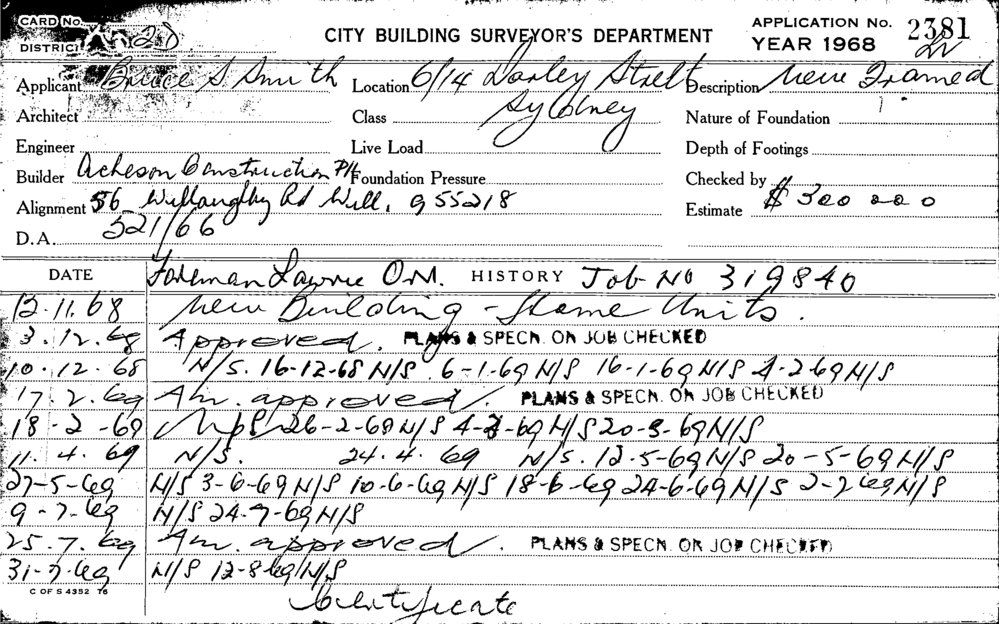 CARD No.
DISTRICT
CITY BUILDING SURVEYOR'S DEPARTMENT
APPLICATION No. 2381
YEAR 1968
Applicant Bruce S Smith Location 6/14 Darley Street Description New Framed
Architect Class Sydney Nature of Foundation
Engineer Live Load Depth of Footings
Builder Acheson Construction P/L Foundation Pressure Checked by
Alignment 56 Willoughby Rd Will. 955218 Estimate $ 300 000
D.A. 521/66
DATE Foreman Lawrie HISTORY Job No 319840
13.11.68 New Building - Home Units.
3.12.68 Approved. PLANS & SPECN. ON JOB CHECKED
10.12.68 N/S. 16-12-68 N/S 6-1-69 N/S 16-1-69 N/S 4-2-69 N/S
17.2.69 Am. approved. PLANS & SPECN. ON JOB CHECKED
18-2-69 N/S 26-2-69 N/S 4-3-69 N/S 20-3-69 N/S
11.4.69 N/S. 24.4.69 N/S. 13-5-69 N/S 20-5-69 N/S
27-5-69 N/S 3-6-69 N/S 10-6-69 N/S 18-6-69 24-6-69 N/S 2-7-69 N/S
9-7-69 N/S 24-7-69 N/S
25.7.69 Am. approved. PLANS & SPECN. ON JOB CHECKED
31-7-69 N/S 12-8-69 N/S
C OF S 4352 76
Certificate